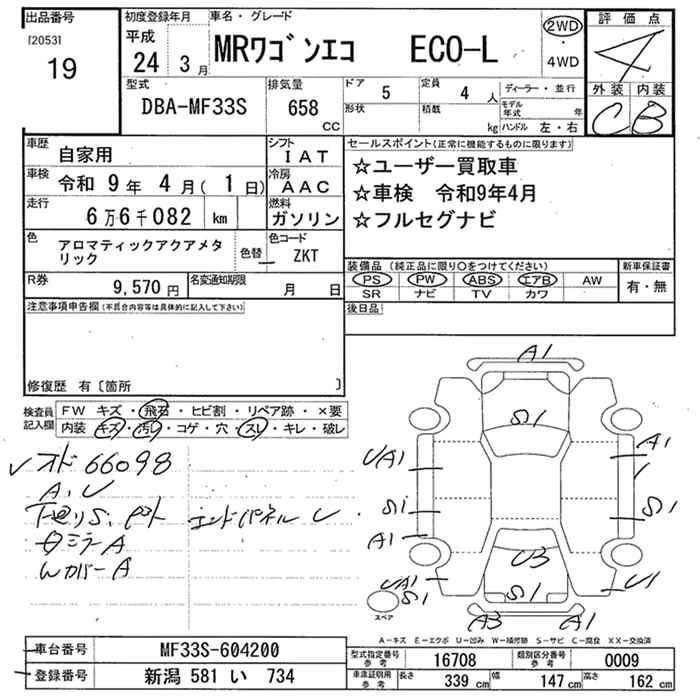 出品番号
[2053]
19
初度登録年月
平成
24 3月
車名・グレード
MRワゴンエコ ECO-L
2WD
4WD
評価点
4
外装 内装
C B
型式
DBA-MF33S
排気量
658 CC
ドア 5
定員 4 人
形状
積載 kg
ディーラー・並行
モデル年式 年
ハンドル 左・右
車歴 自家用
シフト IAT
車検 令和 9年 4月( 1日)
冷房 AAC
走行 6万6千082 km
燃料 ガソリン
色 アロマティックアクアメタリック
色替
色コード ZKT
R券 9,570円
名変通知期限 月 日
セールスポイント(正常に機能するものに限ります)
☆ユーザー買取車
☆車検 令和9年4月
☆フルセグナビ
装備品(純正品に限り○をつけてください)
PS PW ABS エアB AW
SR ナビ TV カワ
新車保証書
有・無
後日品
注意事項申告欄(不具合内容等は具体的に記入して下さい)
修復歴 有〔箇所 〕
検査員記入欄
FW キズ・飛石・ヒビ割・リペア跡・×要
内装 キズ・汚レ・コゲ・穴・スレ・キレ・破レ
オド66098
A.U
下廻りS.
エンドパネル U
ミラーA
カバーA
A1
S1
UA1
A1
S1
S1
A1
U3
UA1
S1
S1
U1
A3
A1
スペア
A-キズ E-エクボ U-凹み W-補修跡 S-サビ C-腐食 XX-交換済
車台番号 MF33S-604200
登録番号 新潟 581 い 734
型式指定番号 参考 16708
類別区分番号 参考 0009
車庫証明用 参考 長さ 339 cm 幅 147 cm 高さ 162 cm